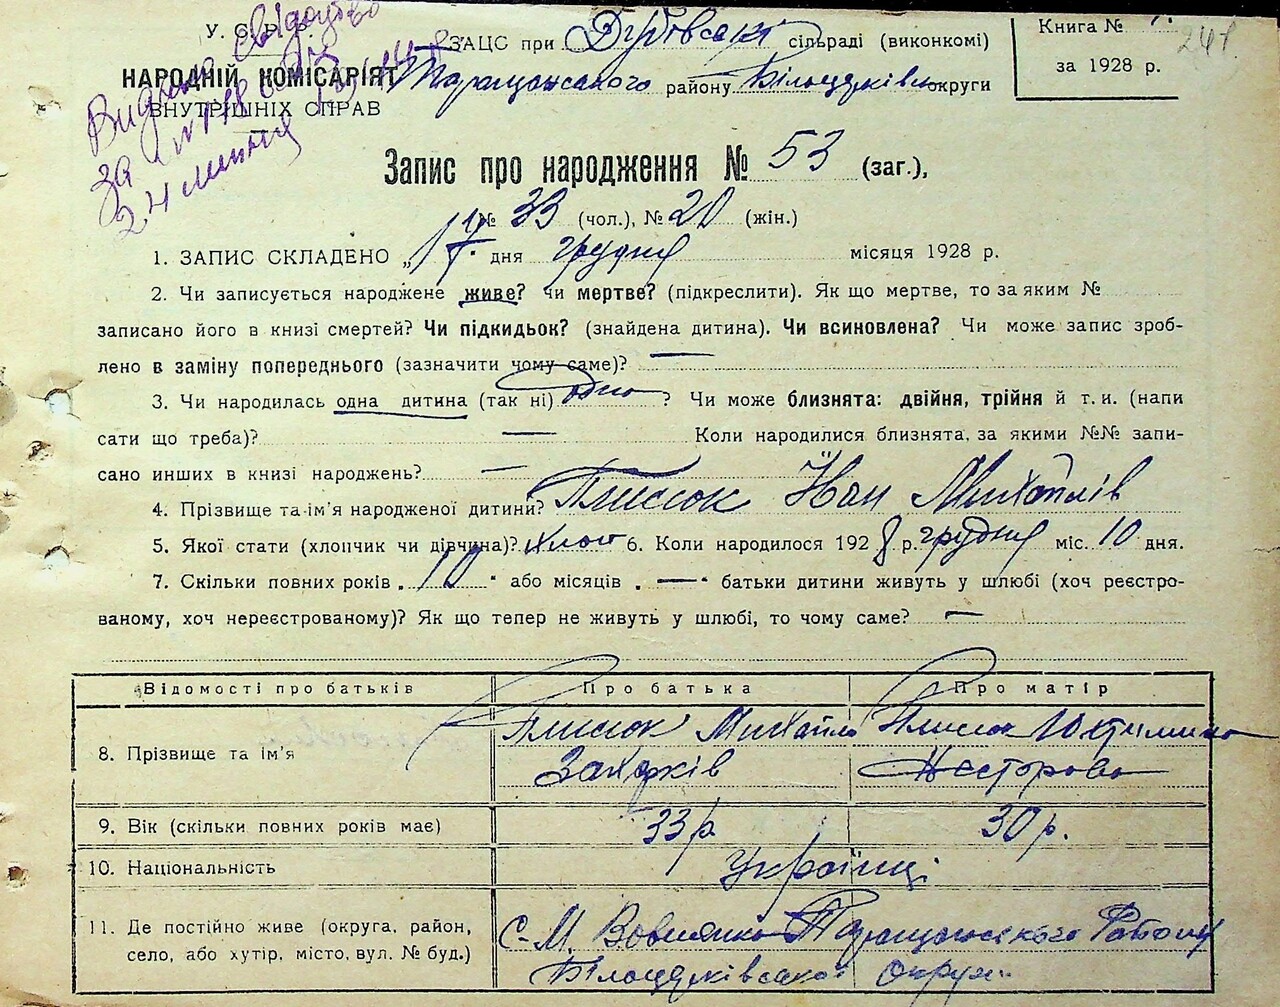 У. С. Р. Р.
НАРОДНІЙ КОМІСАРІЯТ
ВНУТРІШНІХ СПРАВ
Видано свідоцтво
за №
24 липня
ЗАЦС при Дубовській сільраді (виконкомі)
Таращанського району Білоцерківської округи
Книга №
за 1928 р.
Запис про народження № 53 (заг.),
№ 33 (чол.), № 20 (жін.)
1. ЗАПИС СКЛАДЕНО „17" дня грудня місяця 1928 р.
2. Чи записується народжене живе? чи мертве? (підкреслити). Як що мертве, то за яким №
записано його в книзі смертей? Чи підкидьок? (знайдена дитина). Чи всиновлена? Чи може запис зроб-
лено в заміну попереднього (зазначити чому саме)? —
3. Чи народилась одна дитина (так ні) одно ? Чи може близнята: двійня, трійня й т. и. (напи
сати що треба)? — Коли народилися близнята, за якими №№ запи-
сано инших в книзі народжень? —
4. Прізвище та ім'я народженої дитини? Плисюк Іван Михайлів
5. Якої стати (хлопчик чи дівчина)? хлоп 6. Коли народилося 1928 р. грудня міс. 10 дня.
7. Скільки повних років „10" або місяців „—" батьки дитини живуть у шлюбі (хоч реєстро-
ваному, хоч нереєстрованому)? Як що тепер не живуть у шлюбі, то чому саме? —
Відомості про батьків Про батька Про матір
8. Прізвище та ім'я Плисюк Михайло Захарків Плисюк Юхтимина Несторова
9. Вік (скільки повних років має) 33 р. 30 р.
10. Національність Українці
11. Де постійно живе (округа, район,
село, або хутір, місто, вул. № буд.)
С-М. Вовнянка Таращанського Району
Білоцерківської округи